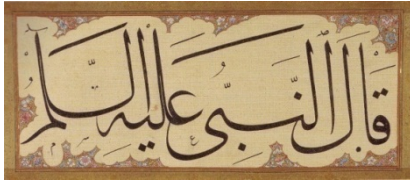 قَالَ النَّبِىُّ عَلَيْهِ السَّلَمُ